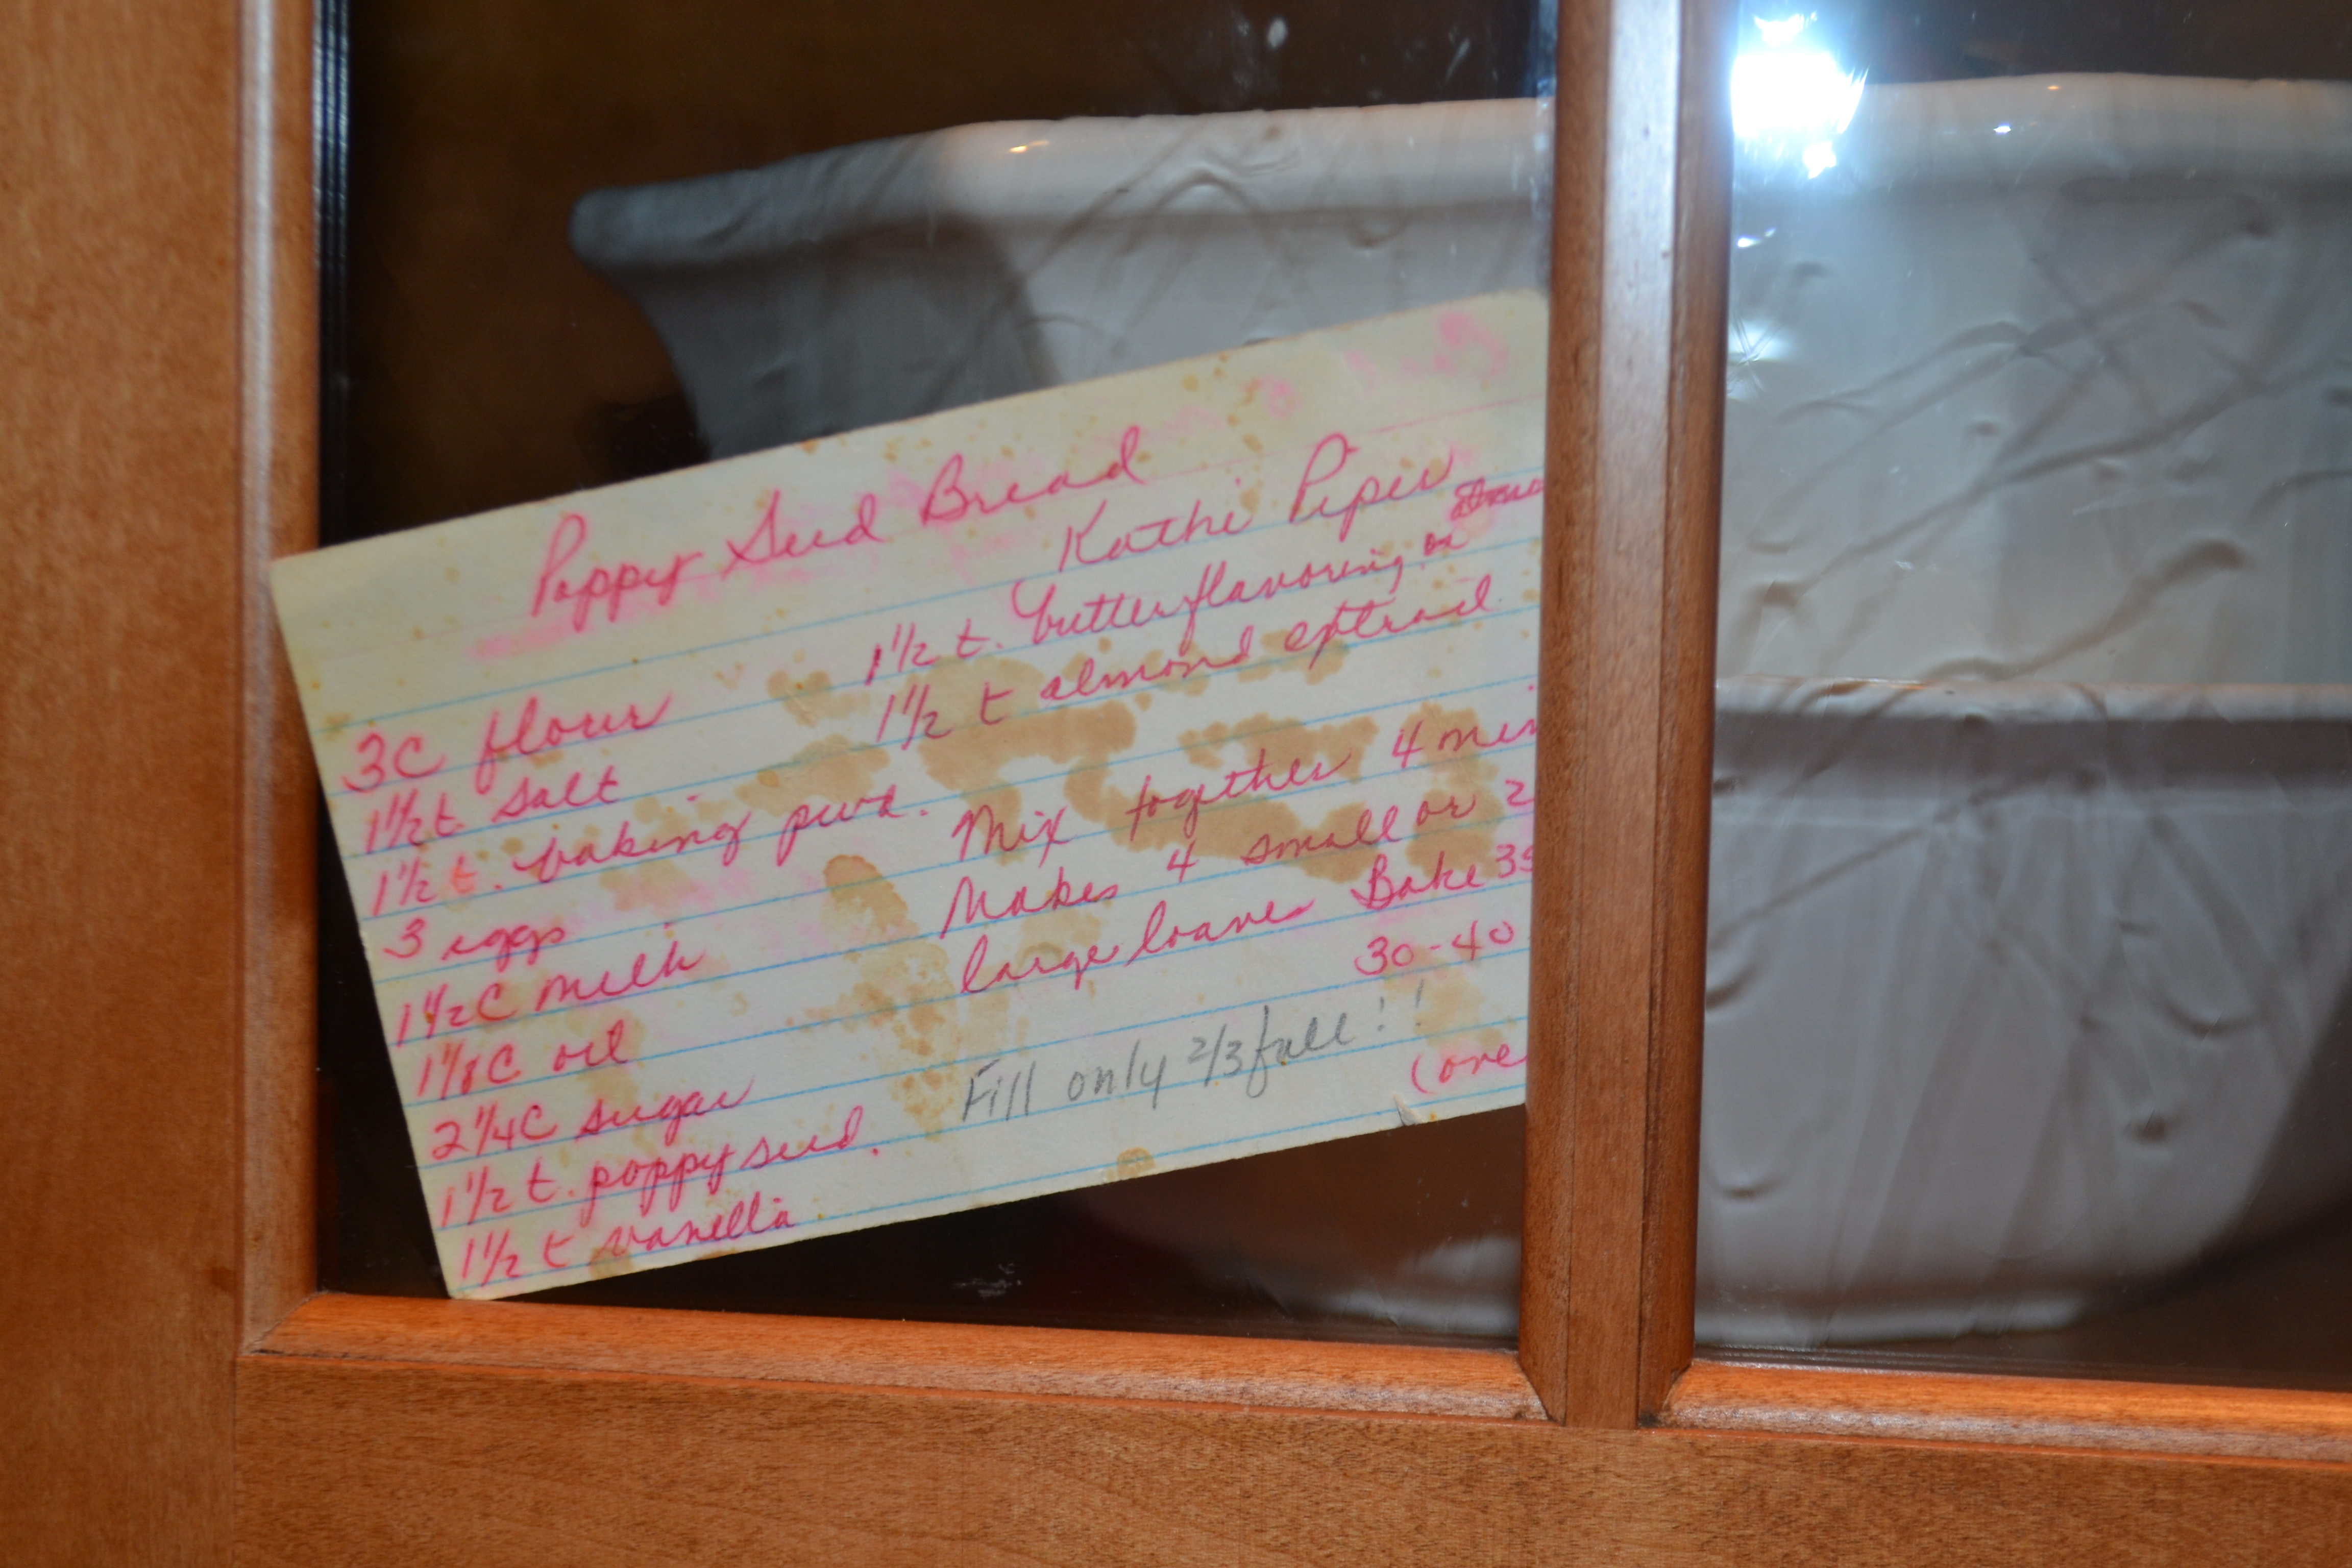 Poppy Seed Bread
Kathi Piper
3C flour
1½ t. salt
1½ t. baking pwd.
3 eggs
1½C milk
1⅛C oil
2¼C sugar
1½ t. poppy seed.
1½ t vanilla
1½ t. butter flavoring or
1½ t almond extract
Mix together 4 min
Makes 4 small or 2
large loaves Bake 35
30-40
Fill only 2/3 full!!
(ove